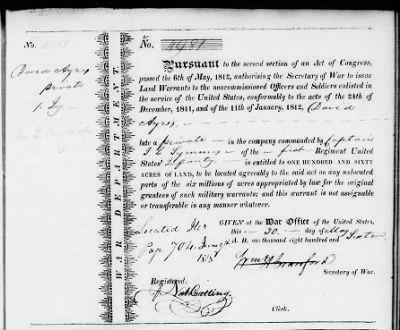 No. 4981
David Ayres
private
1. Ify
WAR DEPARTMENT
No. 4981
Pursuant to the second section of an Act of Congress,
passed the 6th of May, 1812, authorising the Secretary of War to issue
Land Warrants to the noncommissioned Officers and Soldiers enlisted in
the service of the United States, conformably to the acts of the 24th of
December, 1811, and of the 11th of January, 1812, David
Ayres,
late a private in the company commanded by Captain
of the first Regiment United
States' Infantry is entitled to ONE HUNDRED AND SIXTY
ACRES OF LAND, to be located agreeably to the said act on any unlocated
parts of the six millions of acres appropriated by law for the original
grantees of such military warrants; and this warrant is not assignable
or transferable in any manner whatever.
GIVEN at the War Office of the United States,
Located this 30. day of May
A. D. one thousand eight hundred and Sixteen
Wm H Crawford
Secretary of War.
Registered,
Nat Cutting
Clerk.